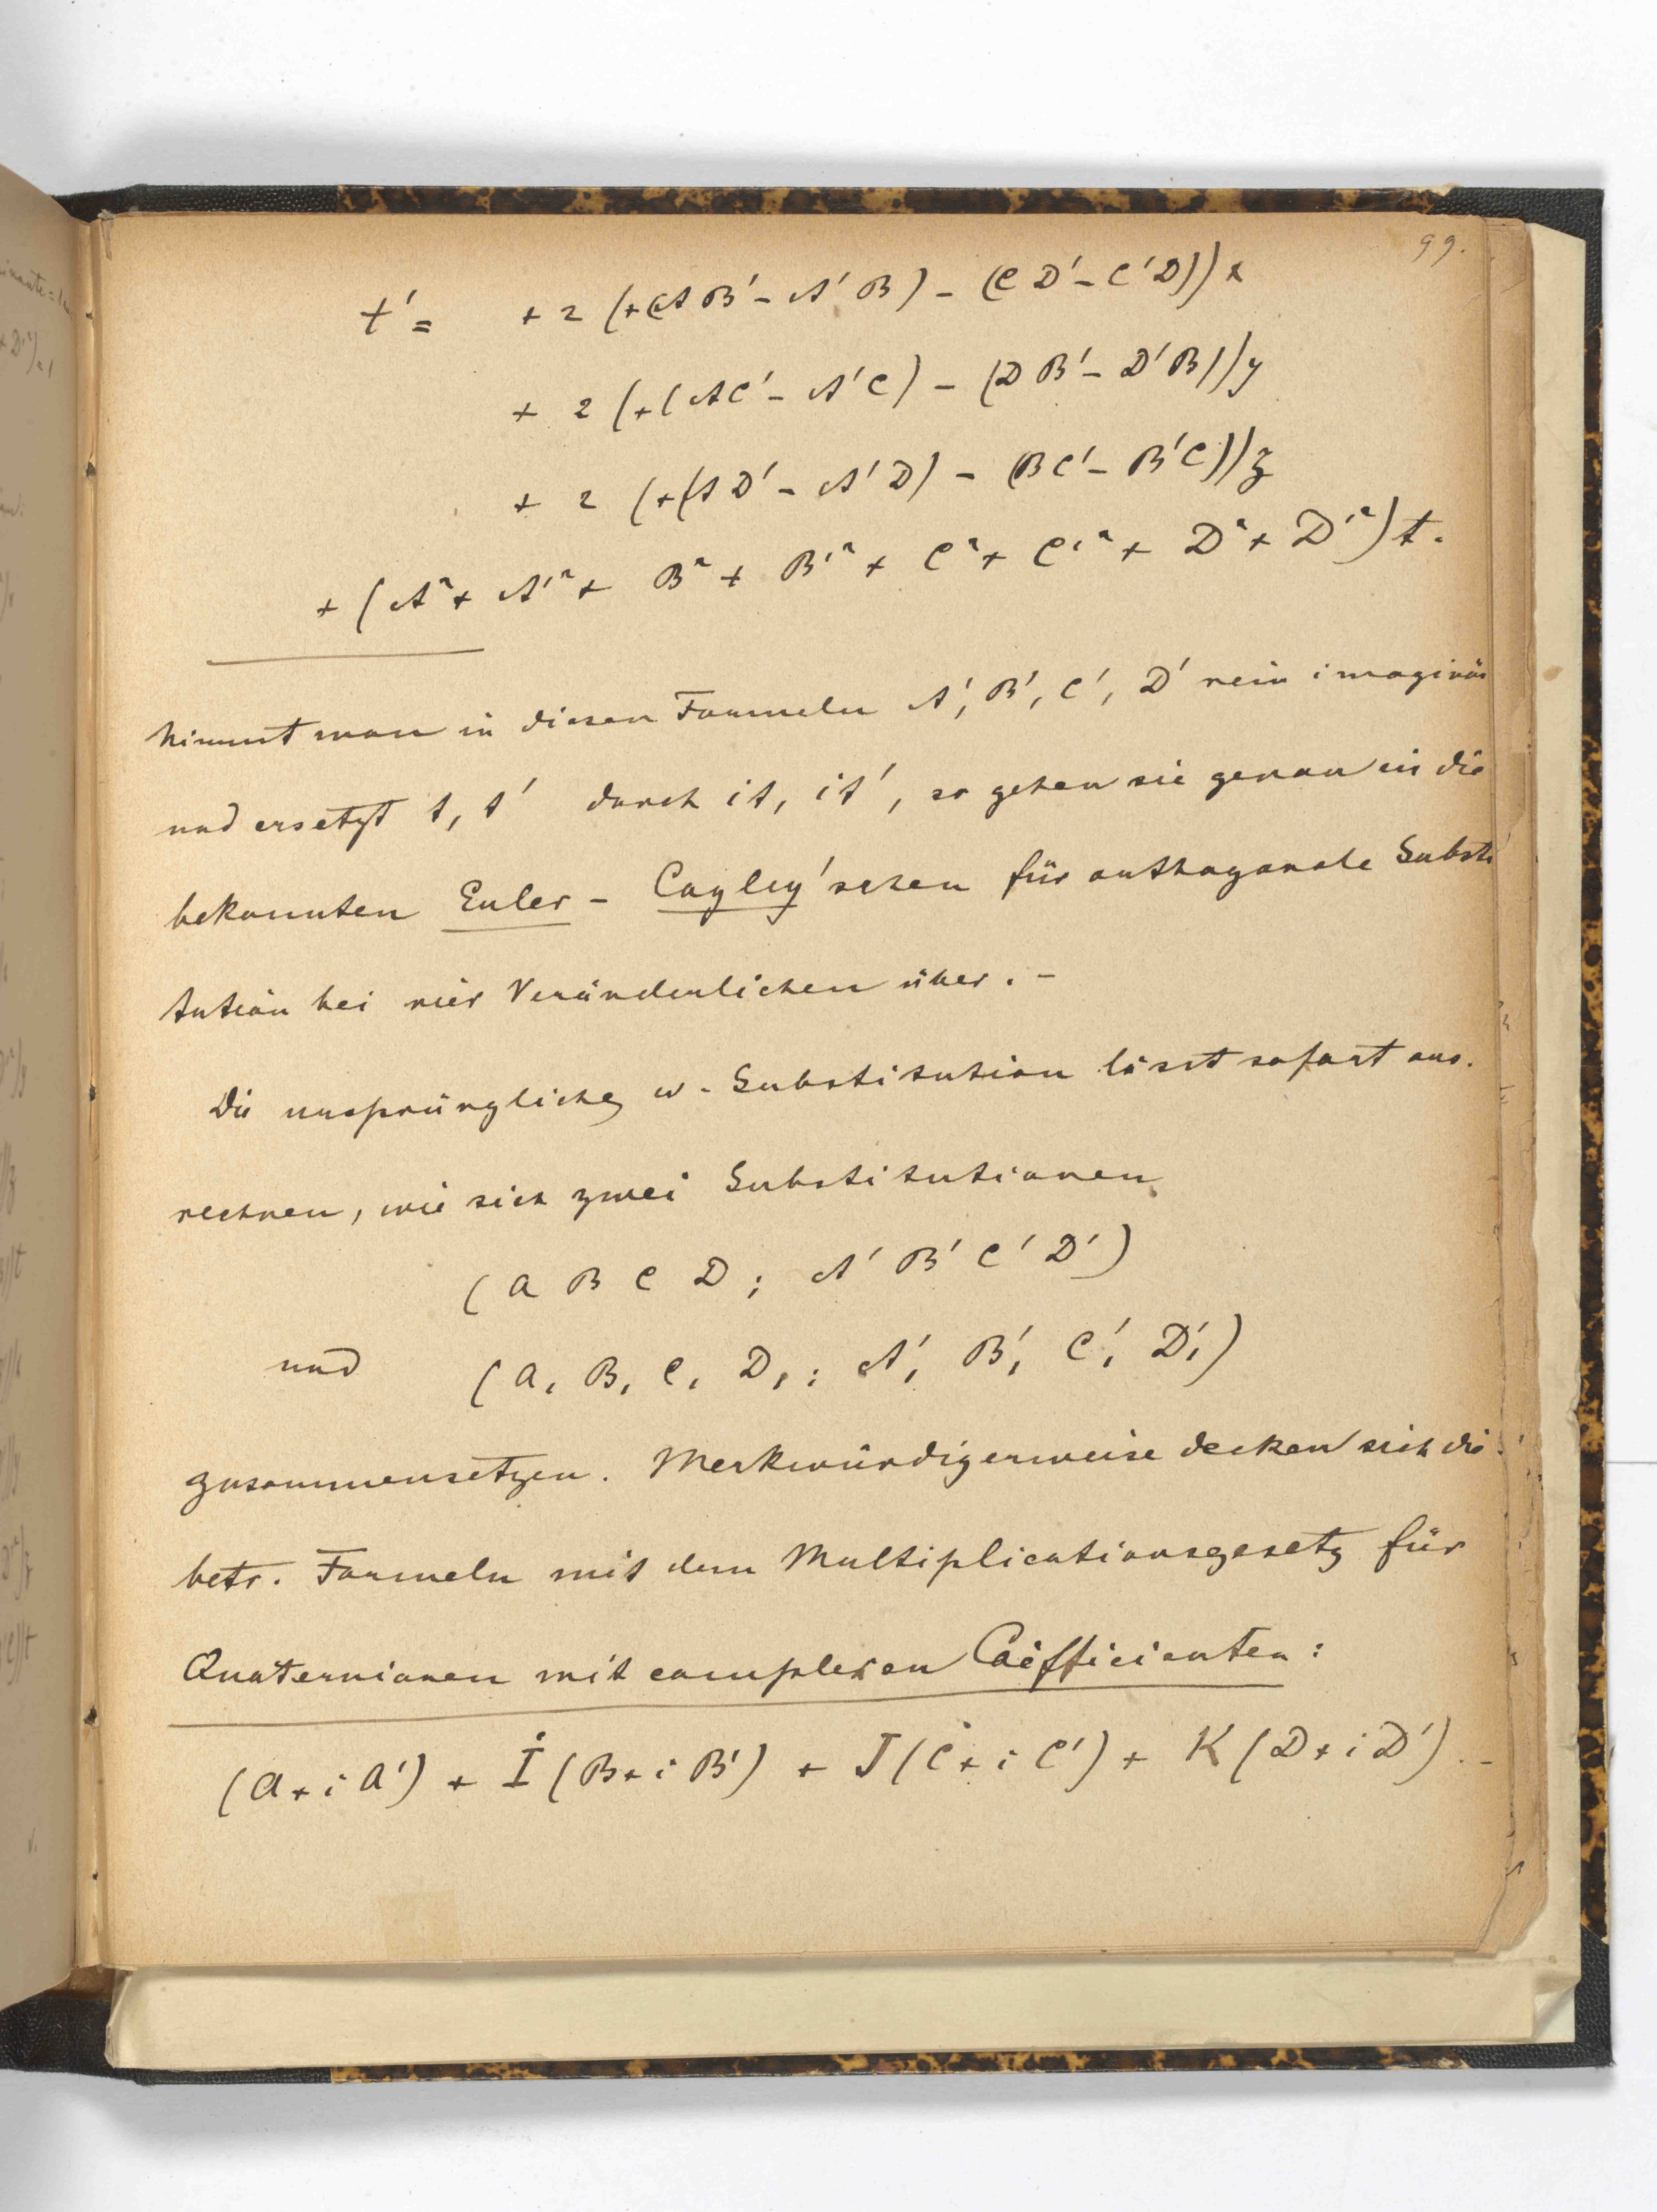 99.
t' = + 2 (+(AB' - A'B) - (CD' - C'D)) x
+ 2 (+(AC' - A'C) - (DB' - D'B)) y
+ 2 (+(AD' - A'D) - (BC' - B'C)) z
+ (A² + A'² + B² + B'² + C² + C'² + D² + D'²) t.
Nimmt man in diesen Formeln A', B', C', D' rein imaginär
und ersetzt t, t' durch it, it', so gehen sie genau in die
bekannten Euler - Cayley'schen für orthogonale Substi
tution bei vier Veränderlichen über. -
Die ursprüngliche w - Substitution lässt sofort aus.
rechnen, wie sich zwei Substitutionen
(A B C D; A' B' C' D')
und (A, B, C, D,; A', B', C', D',)
zusammensetzen. Merkwürdigerweise decken sich die
betr. Formeln mit dem Multiplicationsgesetz für
Quaternionen mit complexen Coëfficienten:
(A + i A') + I (B + i B') + J (C + i C') + K (D + i D'). -